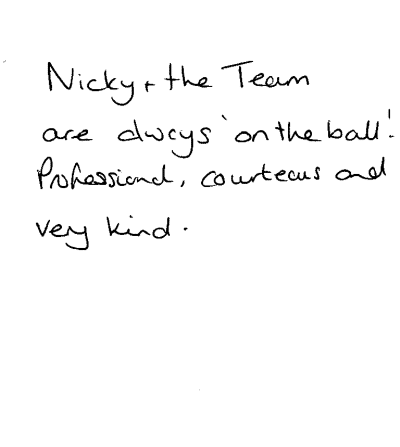 Nicky + the Team
are always 'on the ball'.
Professional, courteous and
very kind.